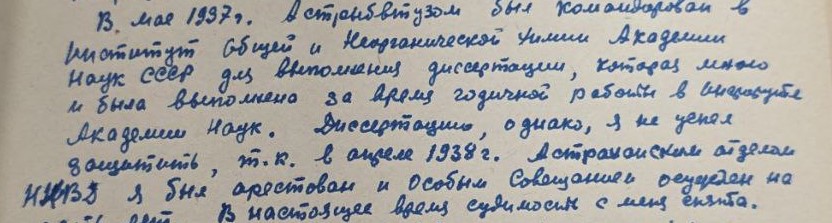 В мае 1937г. Астрыбвтузом был командирован в
Институт Общей и Неорганической Химии Академии
Наук СССР для выполнения диссертации, которая мною
и была выполнена за время годичной работы в Институте
Академии Наук. Диссертацию, однако, я не успел
защитить, т.к. в апреле 1938г. Астраханским отделом
НКВД я был арестован и Особым Совещанием осужден на
лет. В настоящее время судимость с меня снята.